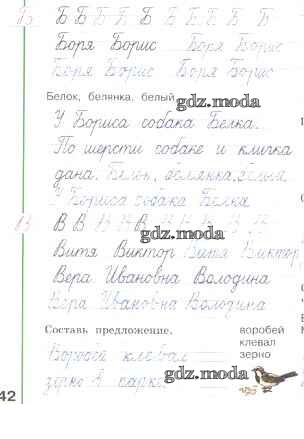 Б Б Б Б Б Б Б Б Б Б
Боря Борис Боря Борис
Боря Борис Боря Борис
Белок, белянка, белый
gdz.moda
У Бориса собака Белка.
По шерсти собаке и кличка
дана. Белок, белянка, белый
У Бориса собака Белка
В В В В В
gdz.moda
Витя Виктор Витя Виктор
Вера Ивановна Володина
Вера Ивановна Володина
Составь предложение. воробей
клевал
Воробей клевал зерно
зерно в парке
gdz.moda
42